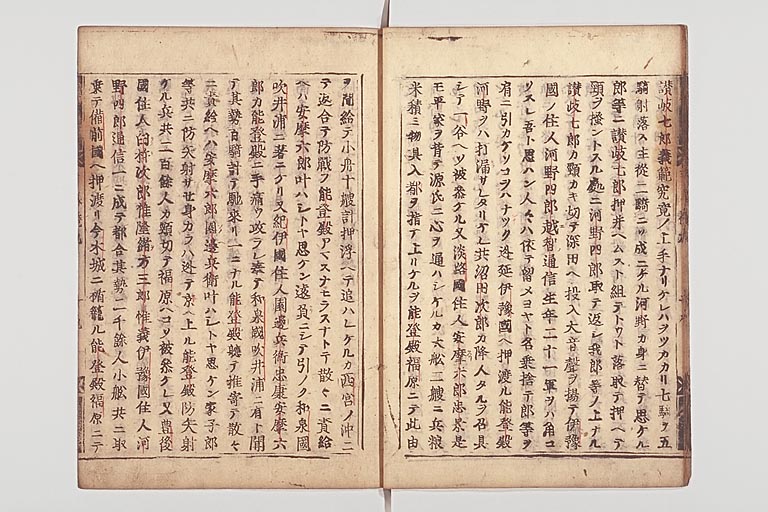 讃岐七郎義範究竟ノ上手ナリケレハヲツカカリ七騎ヲ五
騎射落ス主從二騎ニソ成ニケル河野カ身ニ替テ思ケル
郎等ニ讃岐七郎押并ヘムスト組テトウト落取テ押ヘテ
頸ヲ掻ントスル處ニ河野四郎取テ返シ我郎等ノ上ナル
讃岐七郎カ頸カキ切テ深田ヘ投入大音聲ヲ揚テ伊豫
國ノ住人河野四郎越智通信生年二十一軍ヲハ角コ
ソスレ吾ト思ハン人々ハ依テ留メヨヤト名乗捨テ郎等ヲ
肩ニ引カケソコヲハナツク迯延伊豫國ヘ押渡ル能登殿
河野ヲハ打漏サレタリケレ共沼田次郎カ降人タルヲ召具
シテ一谷ヘソ被参ケル又淡路國住人安摩六郎忠景是
モ平家ヲ背テ源氏ニ心ヲ通ハシケルカ大船二艘ニ兵粮
米積ミ物具入都ヲ指テ上リケルヲ能登殿福原ニテ此由
ヲ聞給テ小舟十艘計押浮ヘテ追ハレケルカ西宮ノ沖ニ
テ返合テ防戦フ能登殿アマスナモラスナトテ散々ニ責給
ヘハ安摩六郎叶ハシトヤ思ケン遠負ニシテ引ノク和泉國
吹井浦ニ著ニケリ又紀伊國住人園邊兵衛忠康安摩六
郎カ能登殿ニ手痛ウ攻ラレ奉テ和泉國吹井浦ニ有ト聞
テ其勢百騎計テ馳來リ一ニナル能登殿軈テ推寄テ散々
ニ責給ヘハ安摩六郎園邊兵衛叶ハシトヤ思ケン家子郎
等共ニ防矢射サセ身カラハ迯テ京ヘ上ル能登殿防矢射
ケル兵共二百餘人カ頸切テ福原ヘコソ被参ケレ又豊後
國住人臼杵次郎惟隆緒方三郎惟義伊豫國住人河
野四郎通信一ニ成テ都合其勢二千餘人小舩共ニ取
乗テ備前國ヘ押渡リ今木城ニ楯籠ル能登殿福原ニテ